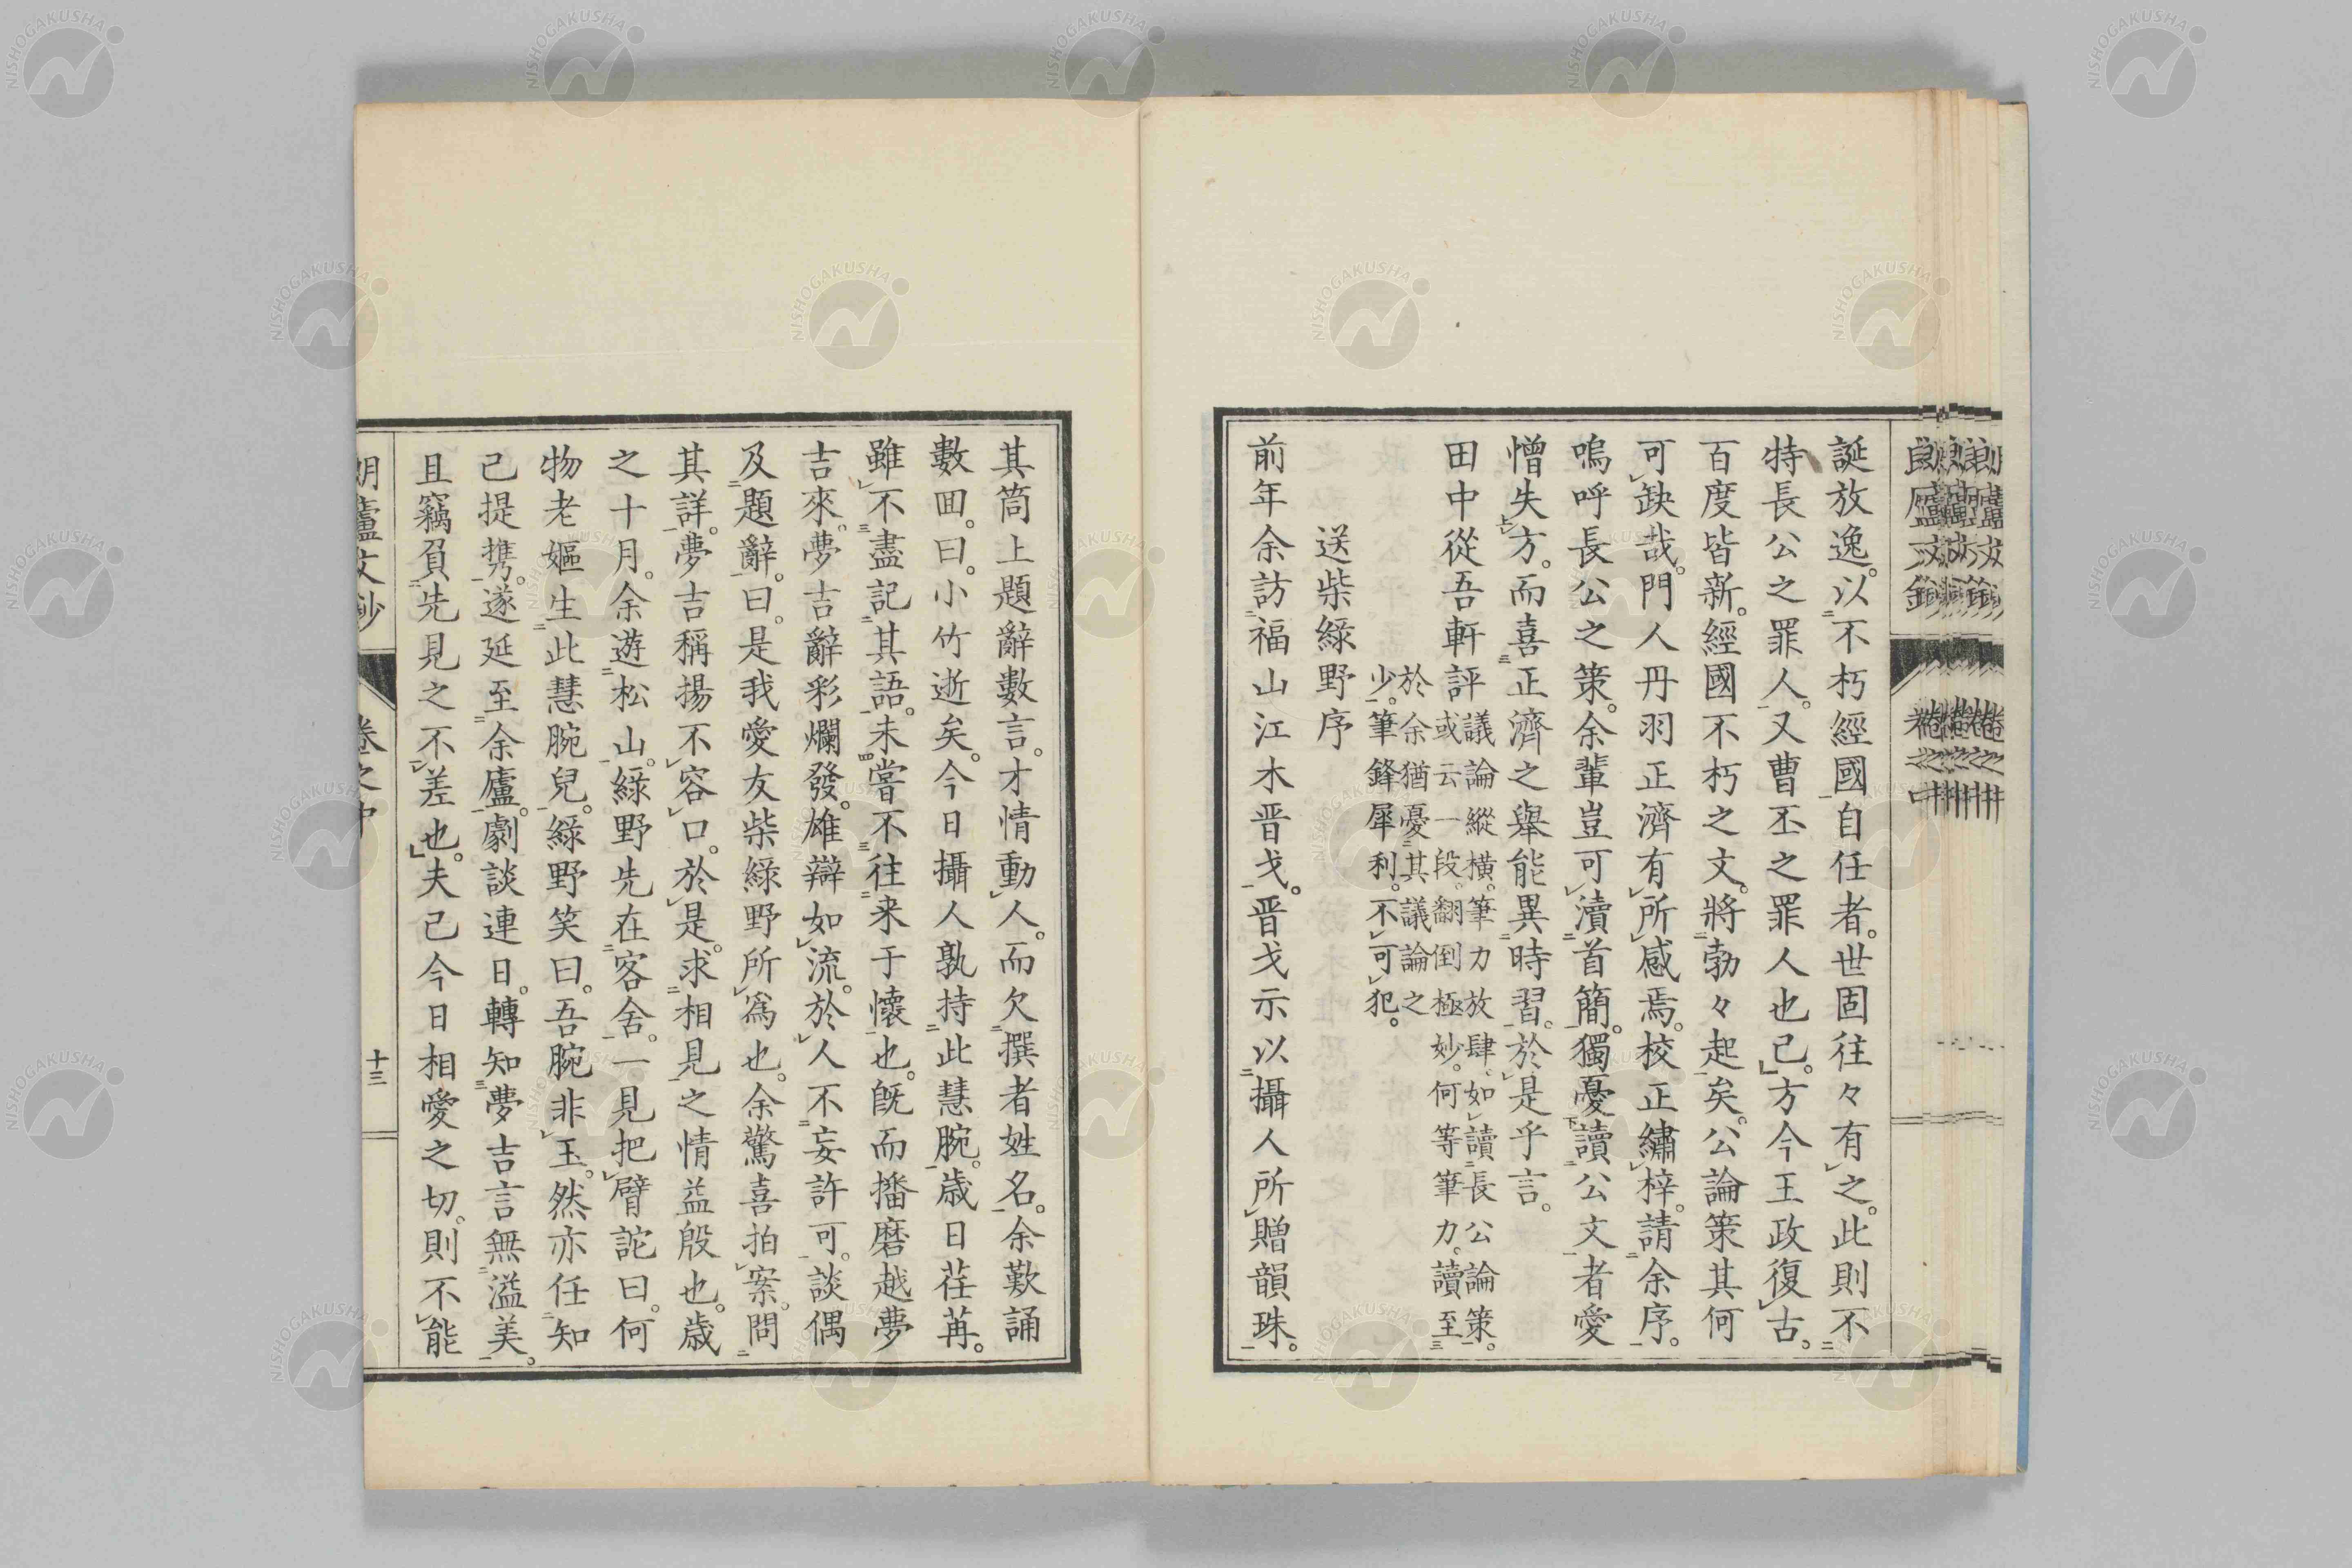 誕放逸。以不朽經國自任者。世固往々有之。此則不
特長公之罪人。又曹丕之罪人也已。方今王政復古。
百度皆新。經國不朽之文。將勃々起矣。公論策其何
可缺哉。門人丹羽正濟有所感焉。校正繡梓。請余序。
嗚呼長公之策。余輩豈可瀆首簡。獨憂讀公文者愛
憎失方。而喜正濟之舉能異時習。於是乎言。
田中從吾軒評
議論縱橫。筆力放肆、如讀長公論策。
或云一段、翻倒極妙。何等筆力。讀至
於余猶憂其議論之
少。筆鋒犀利。不可犯。
送柴綠野序
前年余訪福山江木晋戈。晋戈示以攝人所贈韻珠。
其筒上題辭數言。才情動人。而欠撰者姓名。余歎誦
數囬。曰。小竹逝矣。今日攝人孰持此慧腕。歲日荏苒。
雖不盡記其語。未嘗不往来于懷也。旣而播磨越夢
吉來。夢吉辭彩爛發。雄辯如流。於人不妄許可。談偶
及題辭。曰。是我愛友柴綠野所爲也。余驚喜拍案。問
其詳。夢吉稱揚不容口。於是。求相見之情益殷也。歲
之十月。余遊松山。綠野先在客舍。一見把臂詑曰。何
物老嫗生此慧腕兒。綠野笑曰。吾腕非玉。然亦任知
己提携。遂延至余廬。劇談連日。轉知夢吉言無溢美。
且竊負先見之不差也。夫己今日相愛之切。則不能
朗廬文鈔
卷之中
十三